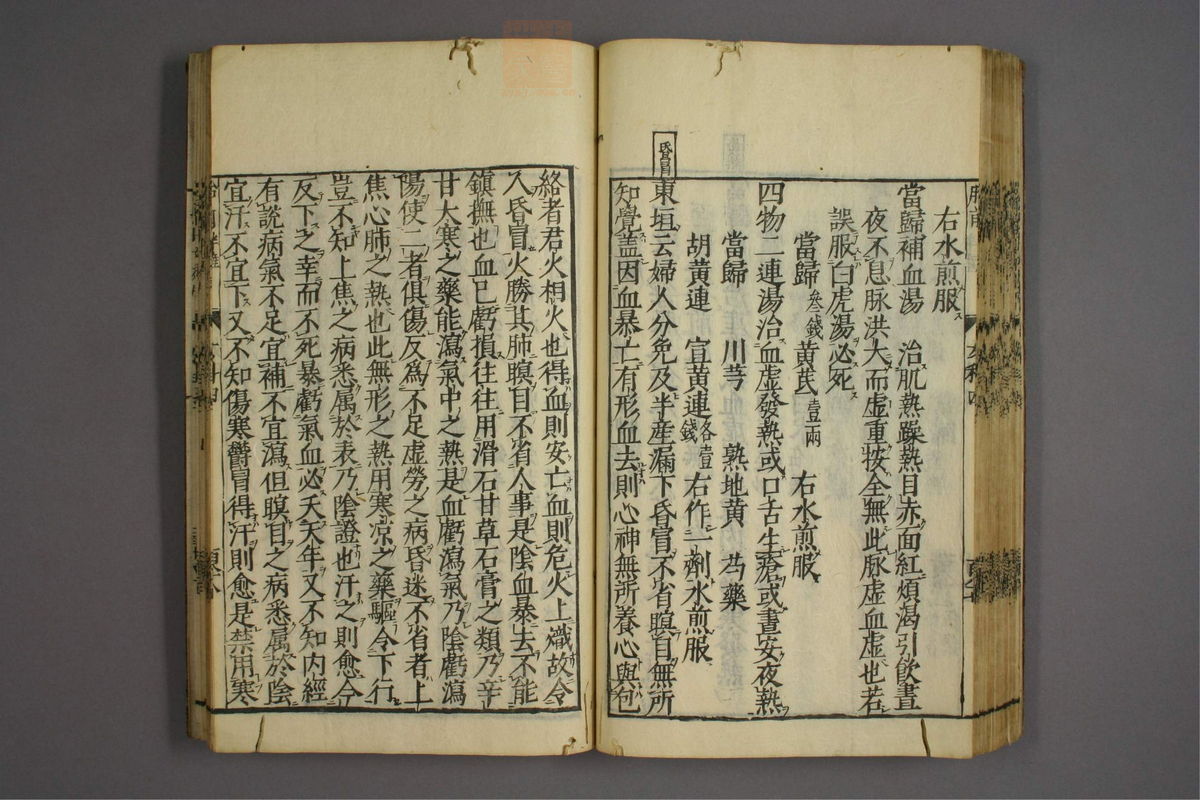 右水煎服
當歸補血湯 治肌熱躁熱目赤面紅煩渴引飲晝
夜不息脉洪大而虛重按全無此脉虛血虛也若
誤服白虎湯必死
當歸叄錢 黃芪壹兩 右水煎服
四物二連湯治血虛發熱或口舌生瘡或晝安夜熱
當歸 川芎 熟地黃 芍藥
胡黃連 宣黃連各壹錢 右作一劑水煎服
昏冒
東垣云婦人分免及半産漏下昏冒不省瞑目無所
知覺盖因血暴亡有形血去則心神無所養心與包
絡者君火相火也得血則安亡血則危火上熾故令
人昏冒火勝其肺瞑目不省人事是陰血暴去不能
鎮撫也血已虧損往往用滑石甘草石膏之類乃辛
甘大寒之藥能瀉氣中之熱是血虧瀉氣乃陰虧瀉
陽使二者俱傷反爲不足虛勞之病昏迷不省者上
焦心肺之熱也此無形之熱用寒凉之藥驅令下行
豈不知上焦之病悉属於表乃陰證也汗之則愈今
反下之幸而不死暴虧氣血必夭天年又不知内經
有說病氣不足宜補不宜瀉但瞑目之病悉属於陰
宜汗不宜下又不知傷寒欝冒得汗則愈是禁用寒